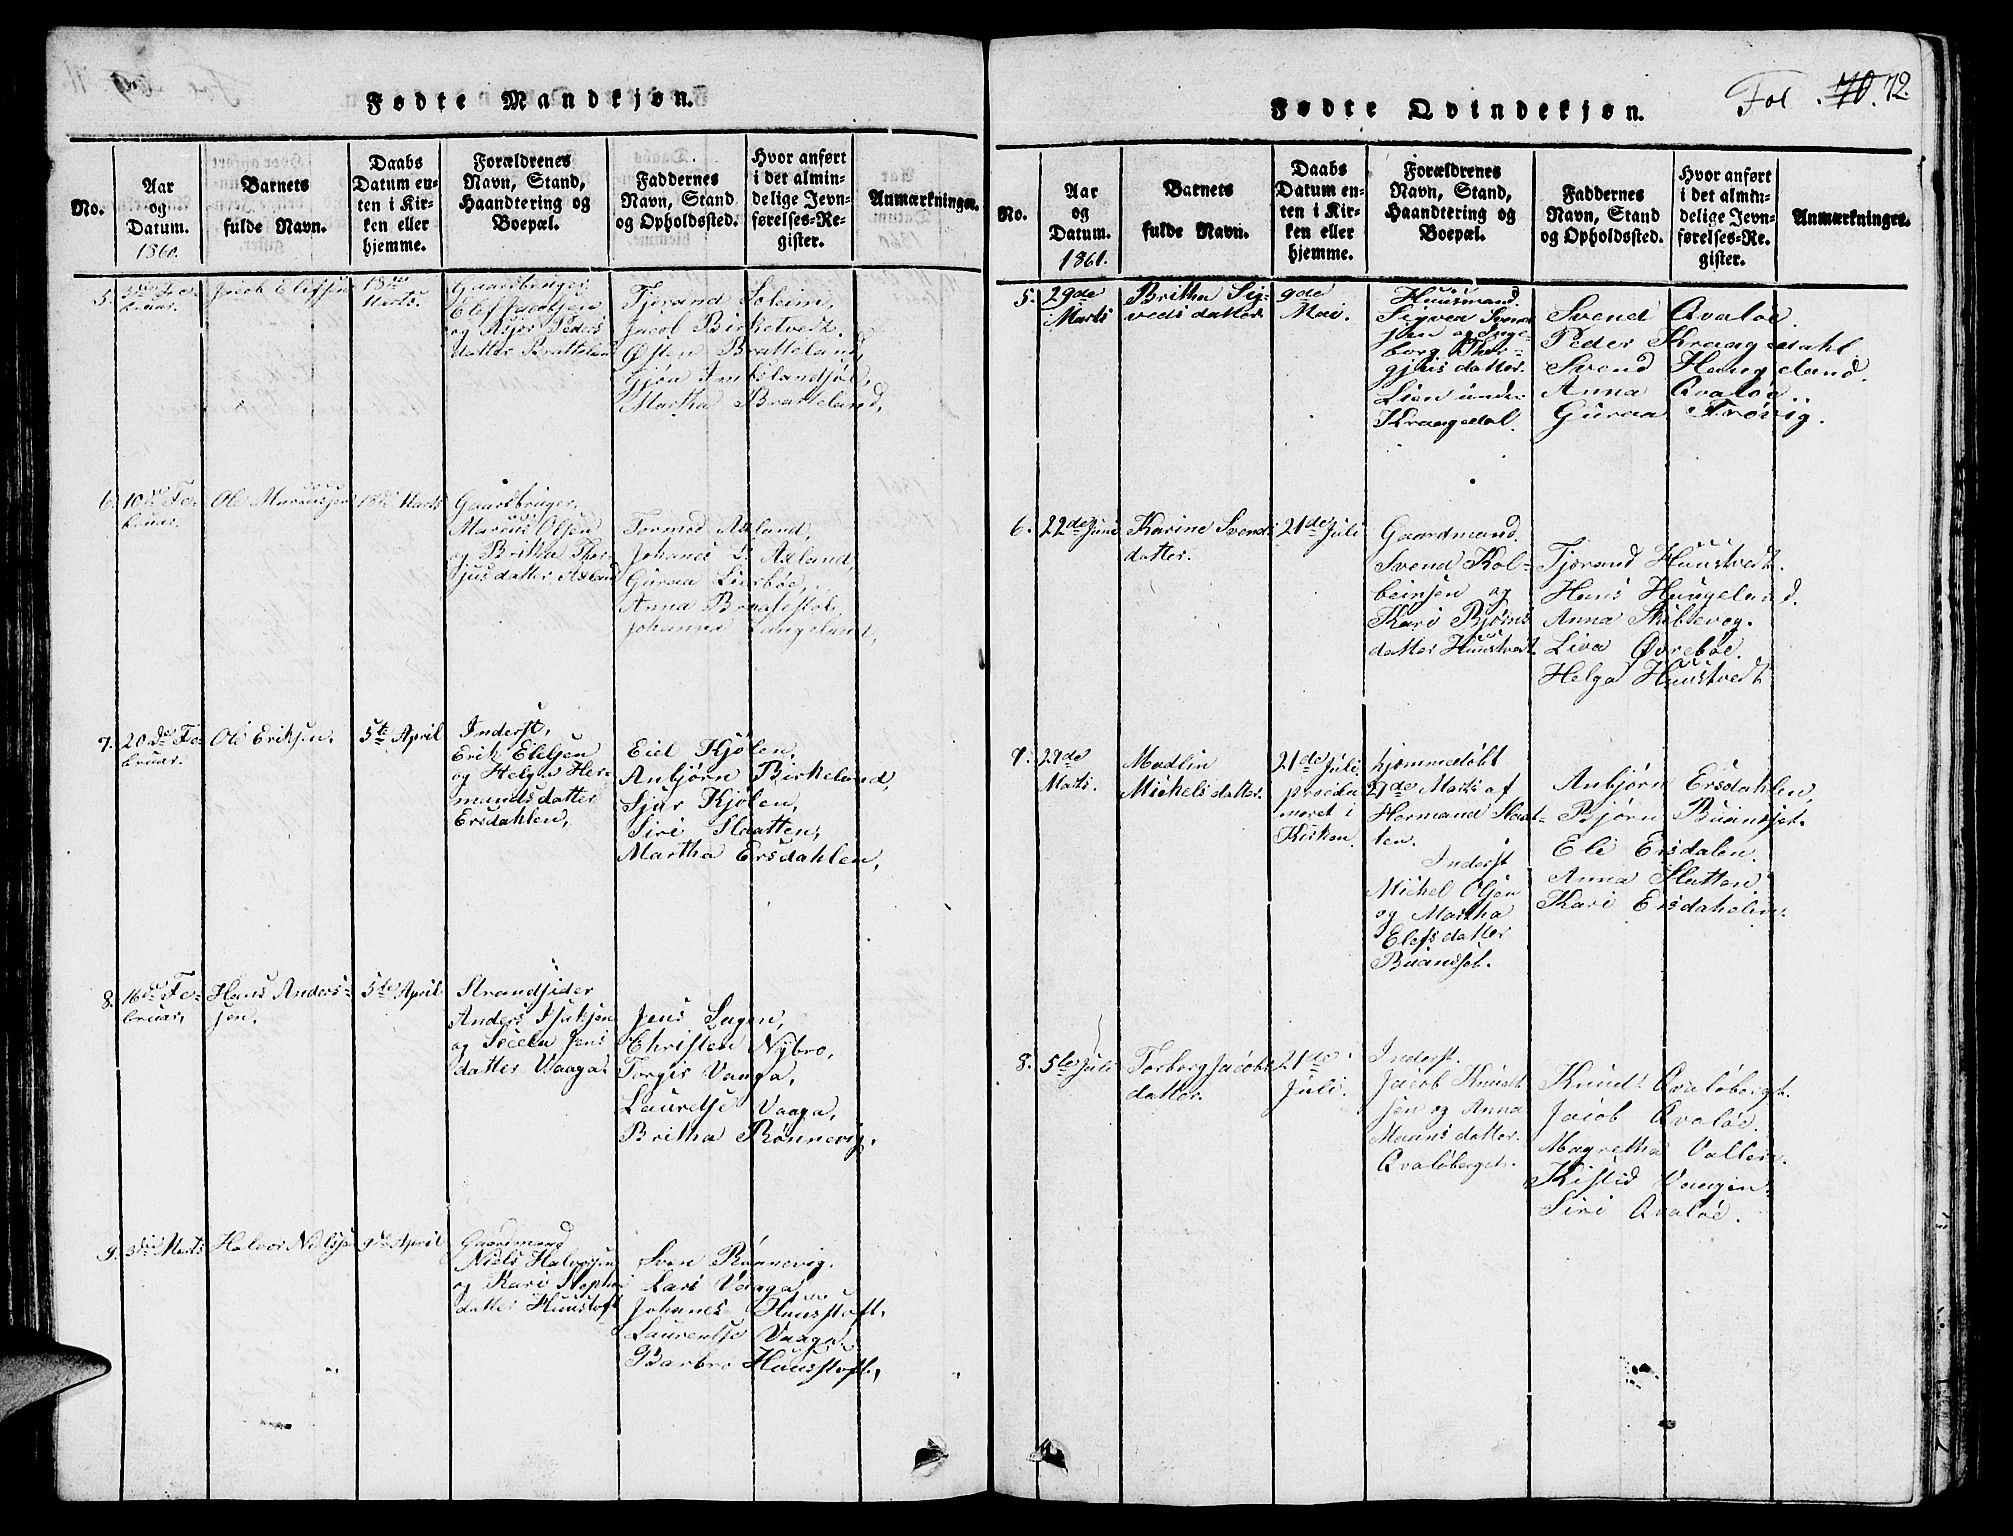 Fødte Mandkjøn.
No.
Aar
og
Datum.
1860.
Barnets
fulde Navn.
Daabs
Datum en-
ten i Kir-
ken eller
hjemme.
Forældrenes
Navn, Stand,
Haandtering og
Boepæl.
Faddernes
Navn, Stand
og Opholdssted.
Hvor anført
i det almin-
delige Jevn-
førelses-Re-
gister.
Anmærkninger.
5.
Fe-
bruar.
Jacob Elefsen
18de
Marts.
Gaardbruger
Elef Jacobsen
og Peders
datter Bratteland
Tjerand Soleim.
Jacob Birketvedt.
Østen Bratteland,
Gjøa
Martha Bratteland,
6.
10de Fe-
bruar.
Ole
18de Marts
Gaardbruger,
Marcus Olsen
og Britha Thor-
datter Axland
Tormod Axland,
Johanes Axland,
Guraa
Anna
Johanna Langeland,
7.
20de Fe-
bruar.
Ole Eriksen.
5te April
Inderst,
Erik Elefsen
og Helga Her-
mundsdatter
Ersdahlen,
Eiel Kjølen,
Anbjørn Birkeland,
Sjur Kjølen,
Siri Slaatten,
Martha Ersdahlen,
8.
16de Fe-
bruar,
Hans Anders-
sen.
5te April
Strandsider
Anders
og Jens
datter Vaaga.
Jens
Christen Nybro,
Torgis Vaaga,
Lauretse Vaaga,
Britha Rønnevig.
9.
3die Marts
Halvor Nielsen
9de April
Gaardmand
Niels Halvorsen
og Kari
datter Huustoft
Sven Rønnevig.
Lars Vaaga
Johanes Huusstoft.
Laurentse Vaaga.
Barbro Huusstoft,
Fødte Qvindekjøn.
Fol. 70. 72.
No.
Aar
og
Datum.
1861.
Barnets
fulde Navn.
Daabs
Datum en-
ten i Kir-
ken eller
hjemme.
Forældrenes
Navn, Stand,
Haandtering og
Boepæl.
Faddernes
Navn, Stand
og Opholdssted.
Hvor anført
i det almin-
delige Jevn-
førelses-Re-
gister.
Anmærkninger.
5.
29de
Marts
Britha Sig-
vedsdatter
9de
Mai.
Huusmand.
Sigved Svend-
sen og Inge-
borg Thor-
gjrisdatter.
Lien under
Kraagedal.
Svend Qvaløe.
Peder Kraagedahl
Svend Haugeland.
Anna Qvaløe.
Guraa Frøvig.
6.
22de Juni
Karine Svends-
datter.
21de Juli
Gaardmand.
Svend Kol-
beinsen og
Kari Bjørns
datter Huustvedt.
Tjerand Huustvedt.
Hans Haugeland.
Anna Skiblevog.
Liva Øvrebøe.
Helga Huustvedt
7.
29de
Marts.
Madlin
Michelsdatter.
21de Juli.
præsen-
teret i
Kirken.
hjemmedøbt
29de Marts af
Hermand Slaat-
ten.
Inderst
Michel Olsen
og Martha
Elefsdatter
Buanset.
Anbjørn Ersdahlen,
Bjørn Buanset.
Eli Ersdalen.
Anna Slatten.
Kari Ersdahelen.
8.
5te Juli
Torborg Jacobs-
datter.
21de
Juli.
Inderst.
Jacob Knudt-
sen og Anna
Maansdatter.
Qvaløberget.
Knud Qvaløberget.
Jacob Qvaløe.
Magretha Vallen.
Kistid Vaagen.
Siri Qvaløe.